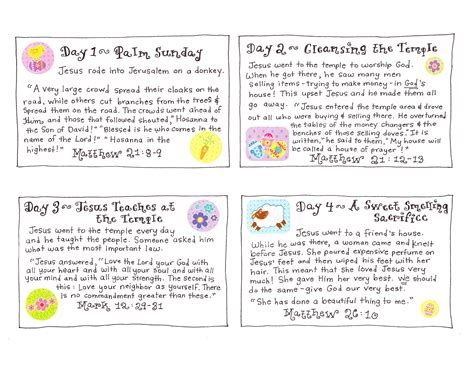 Day 1~ Palm Sunday
Jesus rode into Jerusalem on a donkey.
"A very large crowd spread their cloaks on the
road, while others cut branches from the trees &
spread them on the road. The crowds went ahead of
Him, and those that followed shouted, "Hosanna to
the Son of David!" "Blessed is he who comes in the
name of the Lord!" "Hosanna in the
highest!"
Matthew 21:8-9
Day 2~ Cleansing the Temple
Jesus went to the temple to worship God.
When he got there, he saw many men
selling items - trying to make money - in God's
house! This upset Jesus and He made them all
go away. "Jesus entered the temple area & drove
out all who were buying & selling there. He overturned
the tables of the money changers & the
benches of those selling doves. "It is
written," he said to them," My house will
be called a house of prayer!"
Matthew 21:12-13
Day 3~ Jesus Teaches at
the Temple
Jesus went to the temple every day
and he taught the people. Someone asked him
what was the most important law.
"Jesus answered," Love the Lord your God with
all your heart and with all your soul and with all
your mind and with all your strength. The second is
this: Love your neighbor as yourself. There is
no commandment greater than these."
Mark 12:29-31
Day 4~ A Sweet Smelling
Sacrifice
Jesus went to a friend's house.
While he was there, a woman came and knelt
before Jesus. She poured expensive perfume on
Jesus' feet and then wiped his feet with her
hair. This meant that she loved Jesus very
much! She gave Him her very best. We should
do the same - give God our very best.
"She has done a beautiful thing to me."
Matthew 26:10